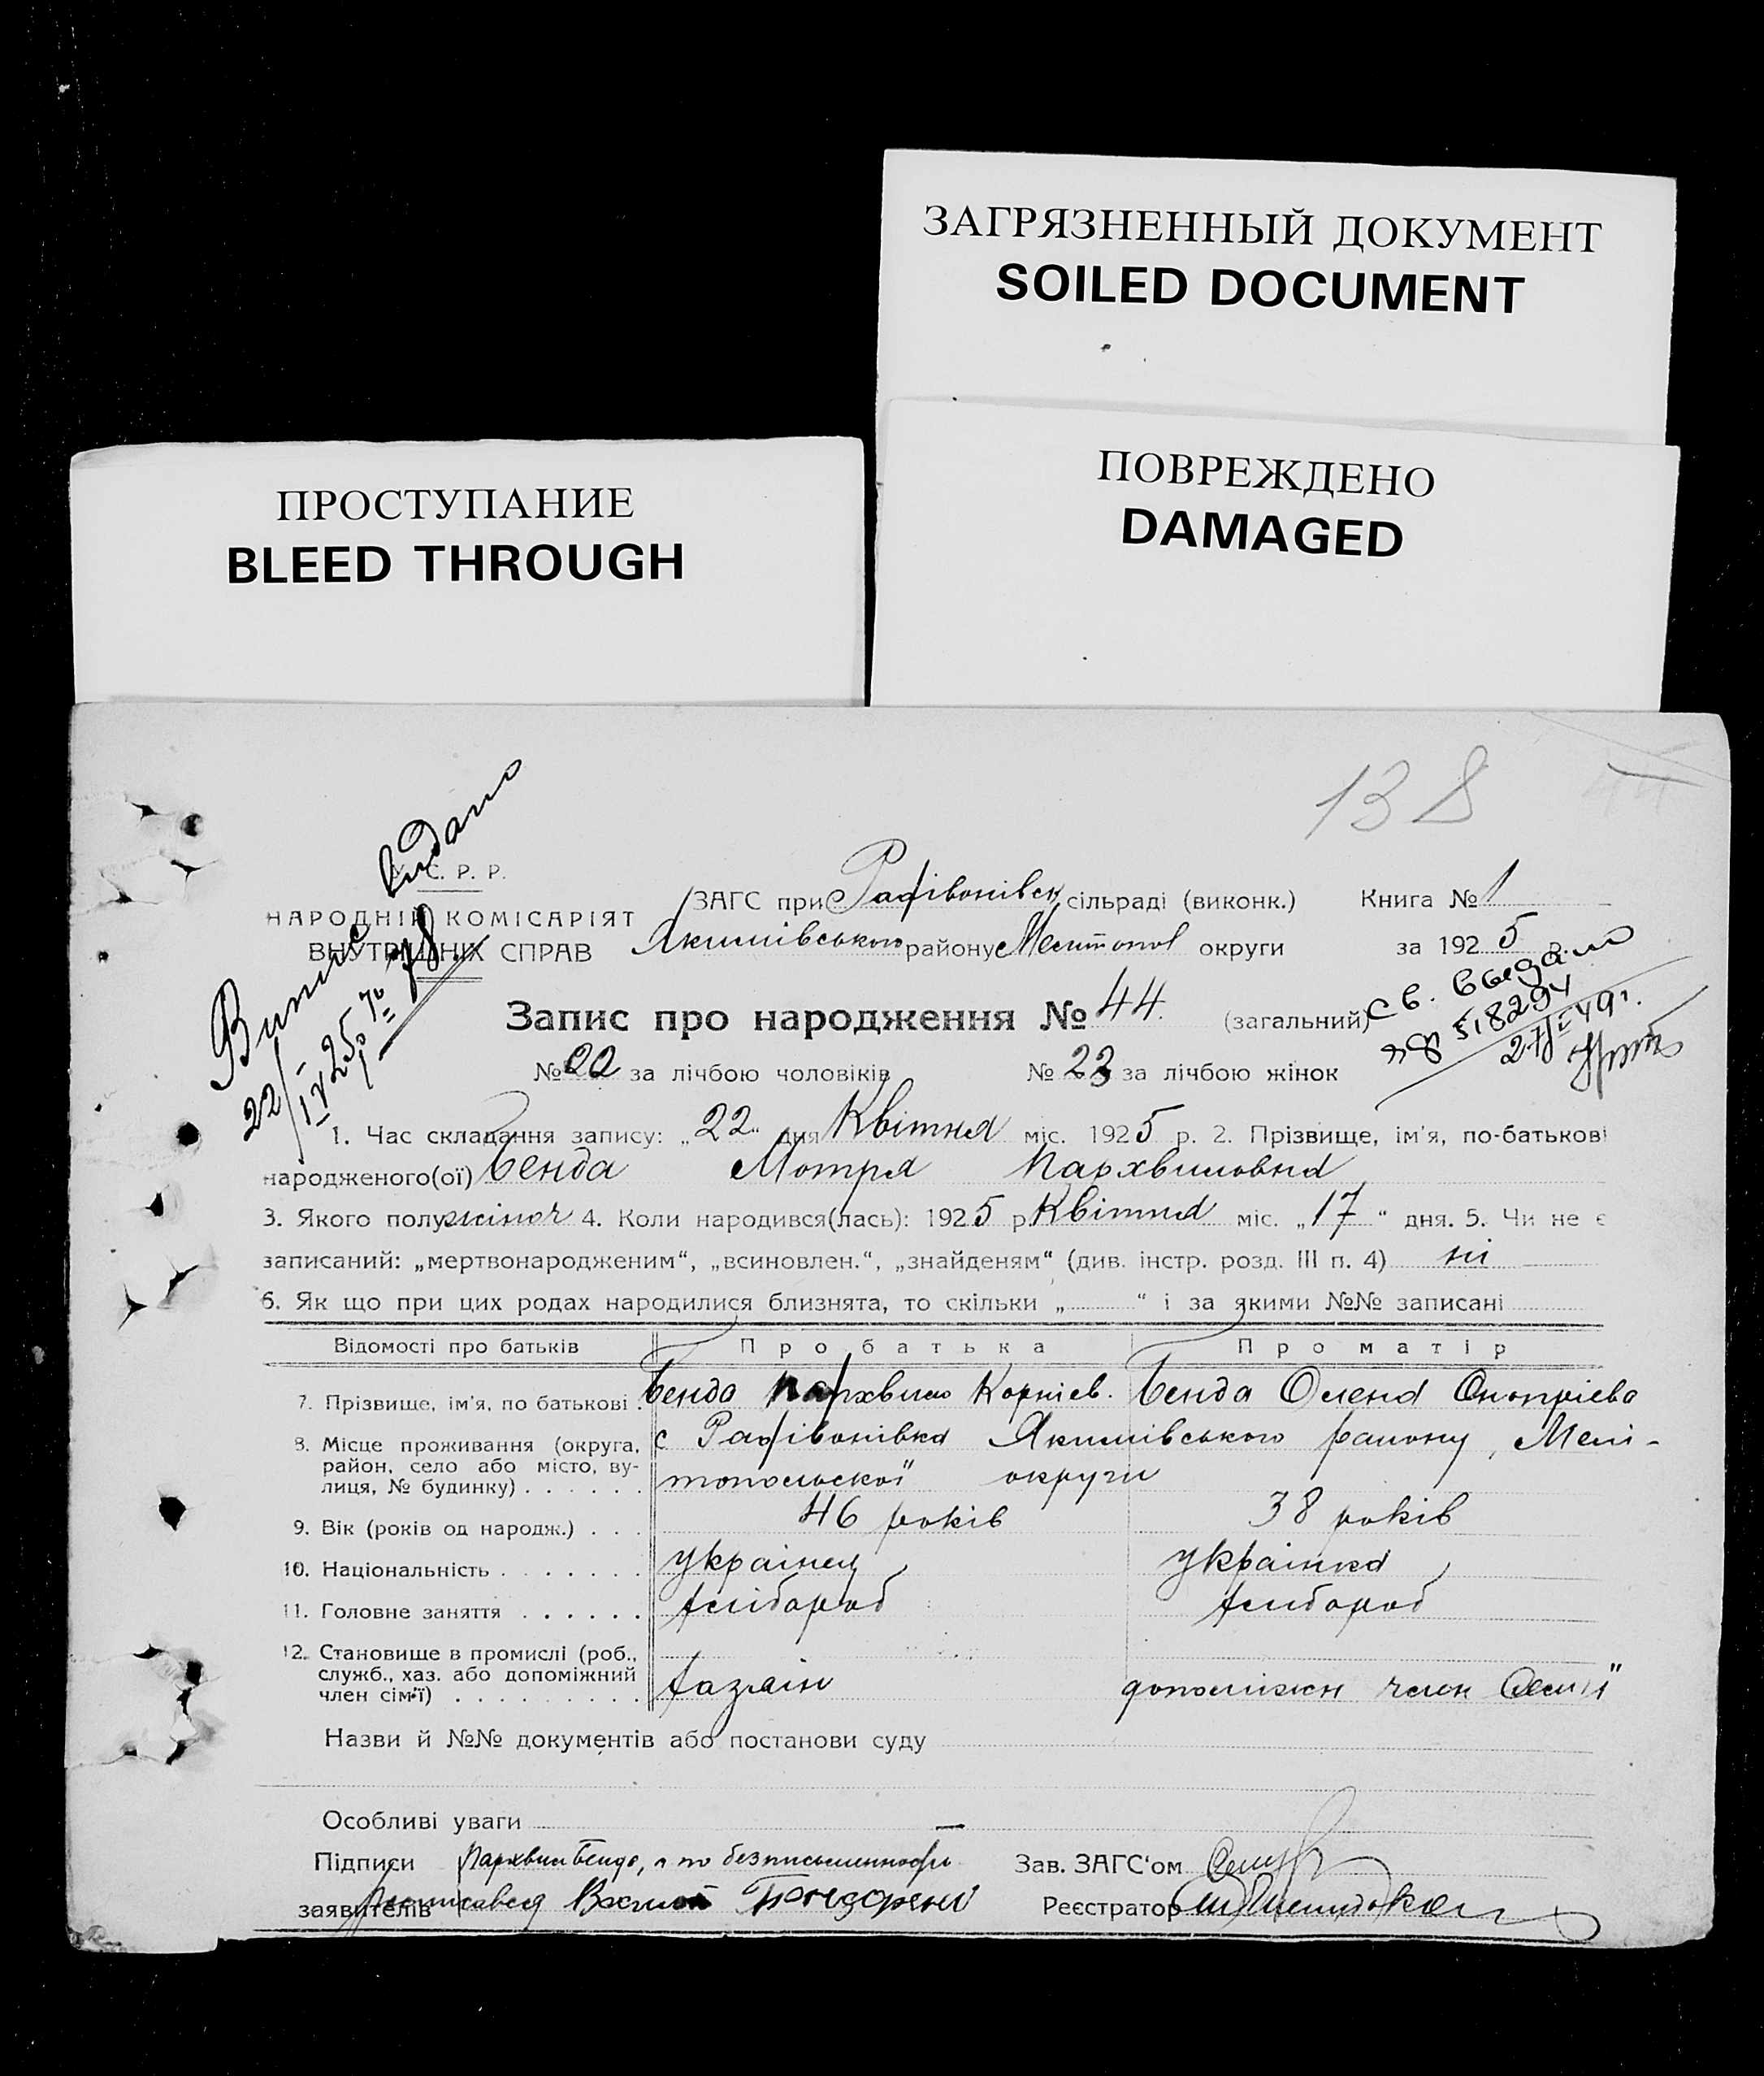 ЗАГРЯЗНЕННЫЙ ДОКУМЕНТ
SOILED DOCUMENT
ПРОСТУПАНИЕ
BLEED THROUGH
ПОВРЕЖДЕНО
DAMAGED
138
Випис видано
22/IV 25 р №78
С. Р. Р.
НАРОДНІЙ КОМІСАРІЯТ
ВНУТРІШНІХ СПРАВ
ЗАГС при Радівонівськ сільраді (виконк.) Книга № 1
Якимівського району Мелітопол округи за 1925 р.
Запис про народження № 44 (загальний)
Св. выдано
ЯФ 518294
27/I-49г.
№ 22 за лічбою чоловіків № 23 за лічбою жінок
1. Час складання запису: „22“ дня Квітня міс. 1925 р. 2. Прізвище, ім'я, по-батькові
народженого(ої) Бенда Мотря Пархвиловна
3. Якого полу жіноч 4. Коли народився(лась): 1925 р. Квітня міс. „17“ дня. 5. Чи не є
записаний: „мертвонародженим“, „всиновлен.“, „знайденям“ (див. інстр. розд. III п. 4) ні
6. Як що при цих родах народилися близнята, то скільки „ “ і за якими №№ записані
Відомості про батьків Про батька Про матір
7. Прізвище, ім'я, по батькові . Бенда Пархвило Корнієв. Бенда Олена Онопрієва
8. Місце проживання (округа, район, село або місто, вулиця, № будинку) . . . . . . с Радівонівка Якимівського району, Мелі-
топольської округи
9. Вік (років од народж.) . . . 46 років 38 років
10. Національність . . . . . . . українец українка
11. Головне заняття . . . . . . хлібороб хлібороб
12. Становище в промислі (роб.,
служб., хаз. або допоміжний
член сім'ї) . . . . . . . . . хазяїн допоміжн член семії
Назви й №№ документів або постанови суду
Особливі уваги —
Підписи Пархвил Бенда, а по безписьменности
заявителів росписався Василь
Зав. ЗАГС'ом
Реєстратор